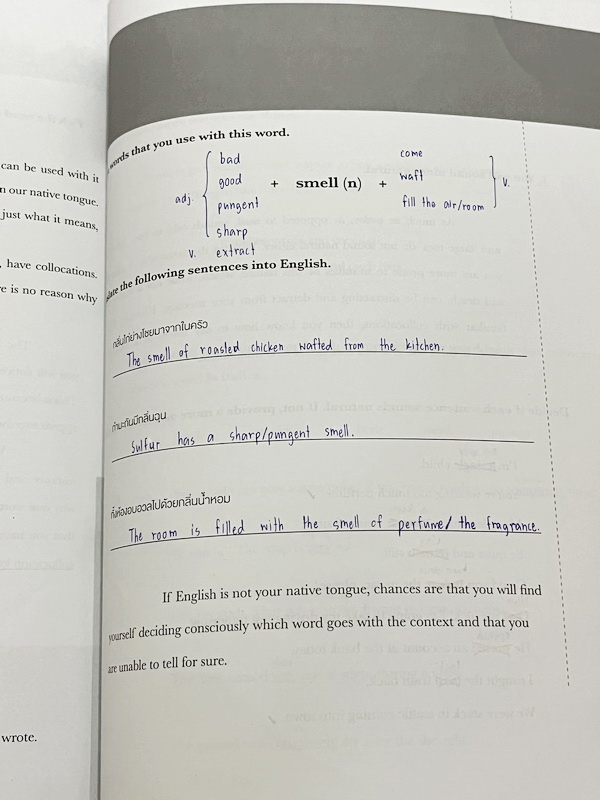 can be used with it
n our native tongue.
just what it means,
, have collocations.
re is no reason why
wrote.
words that you use with this word.
adj. bad
good
pungent
sharp
v. extract
+ smell (n) +
come
waft
fill the air/room
v.
late the following sentences into English.
กลิ่นไก่ย่างโชยมาจากในครัว
The smell of roasted chicken wafted from the kitchen.
กำมะถันมีกลิ่นฉุน
Sulfur has a sharp/pungent smell.
ทั้งห้องอบอวลไปด้วยกลิ่นน้ำหอม
The room is filled with the smell of perfume/ the fragrance.
If English is not your native tongue, chances are that you will find
yourself deciding consciously which word goes with the context and that you
are unable to tell for sure.